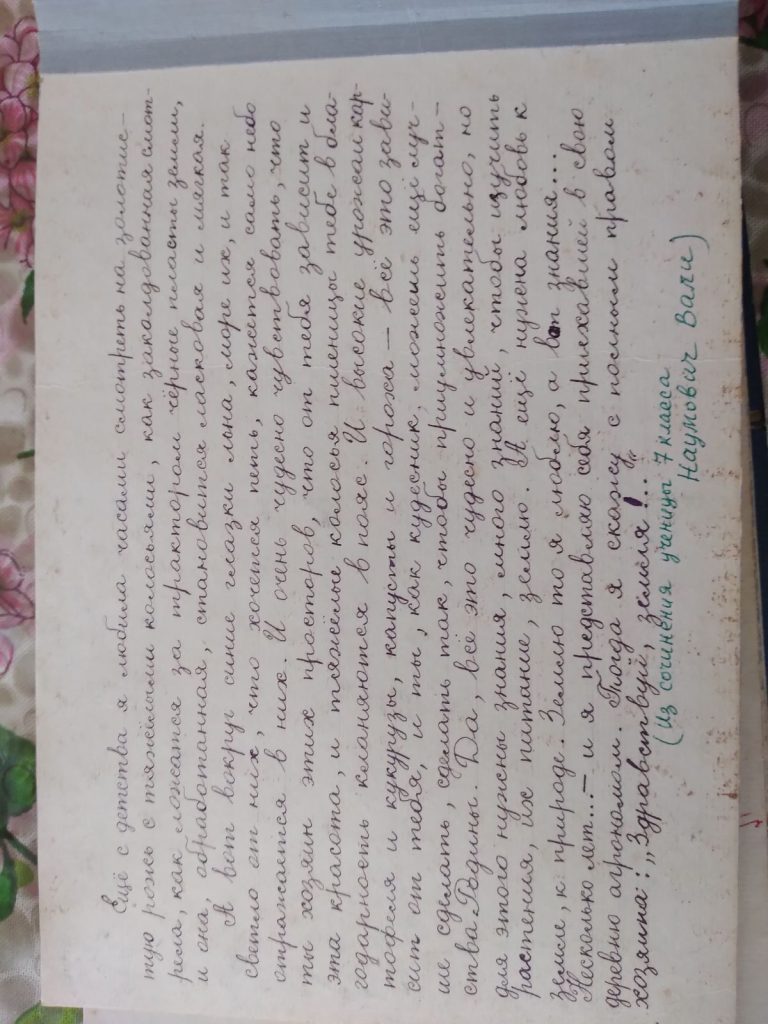 Ещё с детства я любила часами смотреть на золотис-
тую рожь с тяжёлыми колосьями, как заколдованная смот-
рела, как ложатся за трактором чёрные пласты земли,
и она, обработанная, становится ласковая и мягкая.
А вот вокруг синие глазки льна, море их, и так
светло от них, что хочется петь, кажется само небо
отражается в них. И очень чудесно чувствовать, что
ты хозяин этих просторов, что от тебя зависит и
эта красота, и тяжёлые колосья пшеницы тебе в бла-
годарность кланяются в пояс. И высокие урожаи кар-
тофеля и кукурузы, капусты и гороха – всё это зави-
сит от тебя, и ты, как кудесник, можешь ещё луч-
ше сделать, сделать так, чтобы приумножить богат-
ства Родины. Да, всё это чудесно и увлекательно, но
для этого нужны знания, много знаний, чтобы изучить
растения, их питание, землю. А ещё нужна любовь к
земле, к природе. Землю то я люблю, а вот знания...
Несколько лет... – и я представляю себя приехавшей в свою
деревню агрономом. Тогда я скажу с полным правом
хозяина: „Здравствуй, земля!..“
(Из сочинения ученицы 7 класса
Наумович Вали)